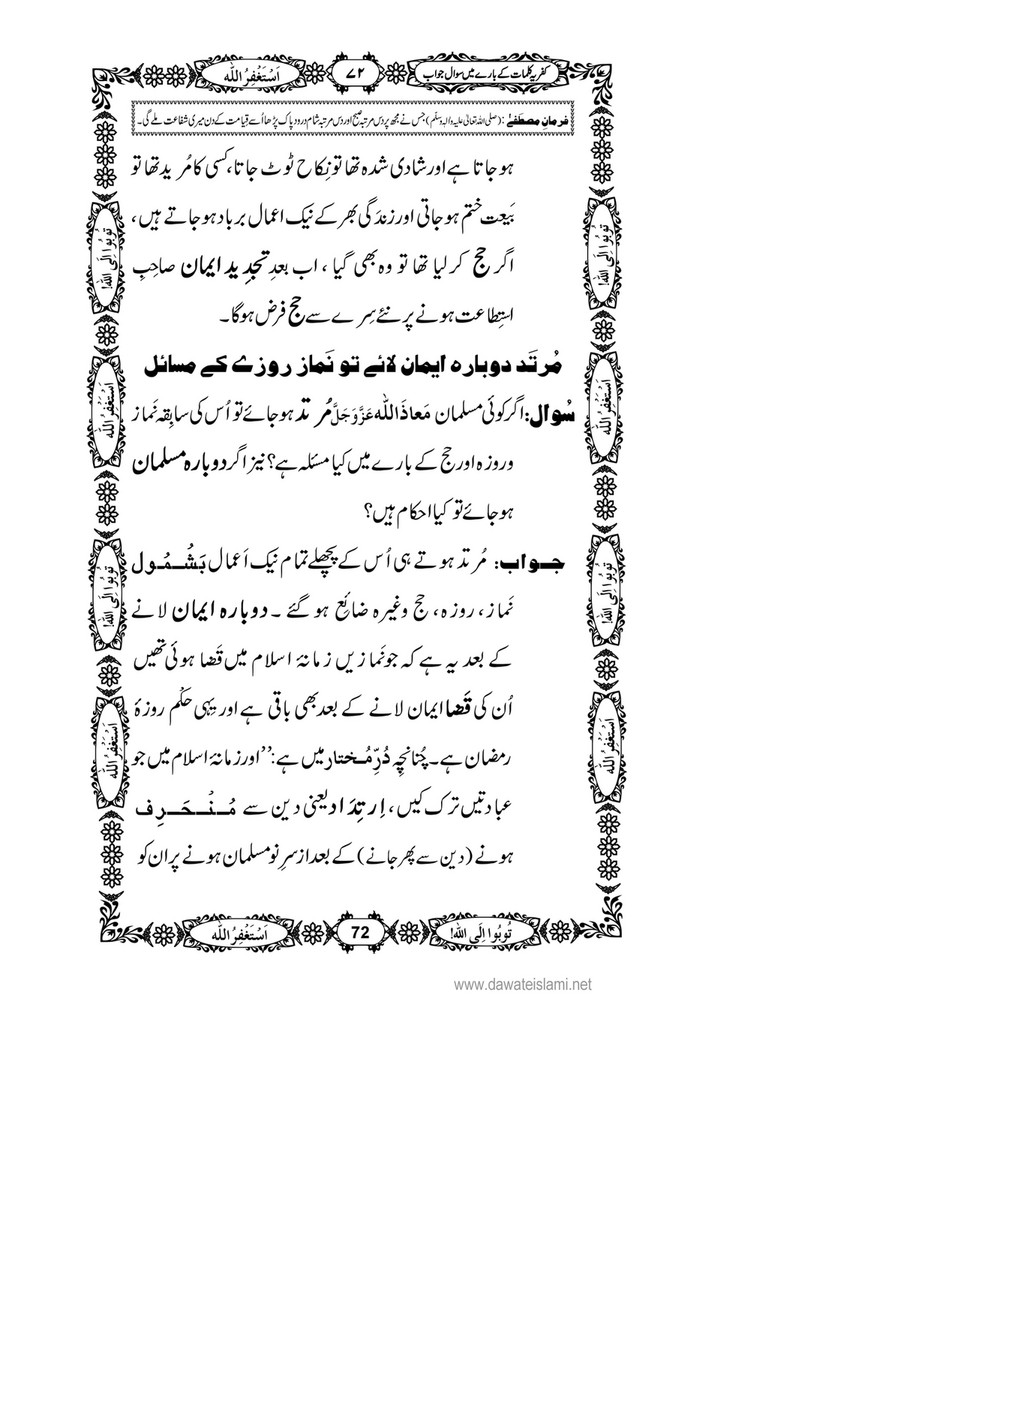 کفریہ کلمات کے بارے میں سوال جواب
۷۲
اَسْتَغْفِرُ اللّٰه
فرمانِ مصطفےٰ : (صلی اللہ تعالیٰ علیہ والہ وسلّم) جس نے مجھ پر دس مرتبہ صبح اور دس مرتبہ شام درود پاک پڑھا اُسے قیامت کے دن میری شفاعت ملے گی۔
ہو جاتا ہے اور شادی شدہ تھا تو نِکاح ٹوٹ جاتا، کسی کا مُرید تھا تو
بَیعت ختم ہو جاتی اور زندگی بھر کے نیک اعمال برباد ہو جاتے ہیں ،
اگر حج کر لیا تھا تو وہ بھی گیا ، اب بعدِ تجدِیدِ ایمان صاحِبِ
استِطاعت ہونے پر نئے سِرے سے حج فرض ہوگا ۔
مُرتَد دوبارہ ایمان لائے تو نَماز روزے کے مسائل
سُوال: اگر کوئی مسلمان مَعاذَاللّٰه عَزَّوَجَلَّ مُرتد ہو جائے تو اُس کی سابِقہ نَماز
وروزہ اور حج کے بارے میں کیا مسئلہ ہے؟ نیز اگر دوبارہ مسلمان
ہو جائے تو کیا احکام ہیں؟
جواب: مُرتد ہوتے ہی اُس کے پچھلے تمام نیک اَعمال بَشُمُول
نَماز، روزہ، حج وغیرہ ضائِع ہو گئے ۔ دوبارہ ایمان لانے
کے بعد یہ ہے کہ جو نَمازیں زمانۂ اسلام میں قَضا ہوئی تھیں
اُن کی قَضا ایمان لانے کے بعد بھی باقی ہے اور یہی حکْم روزۂ
رمضان ہے ۔ چُنانچِہ دُرِّمُختار میں ہے: ’’اور زمانۂ اسلام میں جو
عبادتیں ترک کیں، اِرتِدَاد یعنی دین سے مُنْحَرِف
ہونے (دین سے پھر جانے) کے بعد از سرِ نو مسلمان ہونے پر ان کو
تُوبُوا اِلَى اللّٰه!
اَسْتَغْفِرُ اللّٰه
تُوبُوا اِلَى اللّٰه!
اَسْتَغْفِرُ اللّٰه
تُوبُوا اِلَى اللّٰه!
اَسْتَغْفِرُ اللّٰه
تُوبُوا اِلَى اللّٰه!
اَسْتَغْفِرُ اللّٰه
تُوبُوا اِلَى اللّٰه!
72
اَسْتَغْفِرُ اللّٰه
www.dawateislami.net